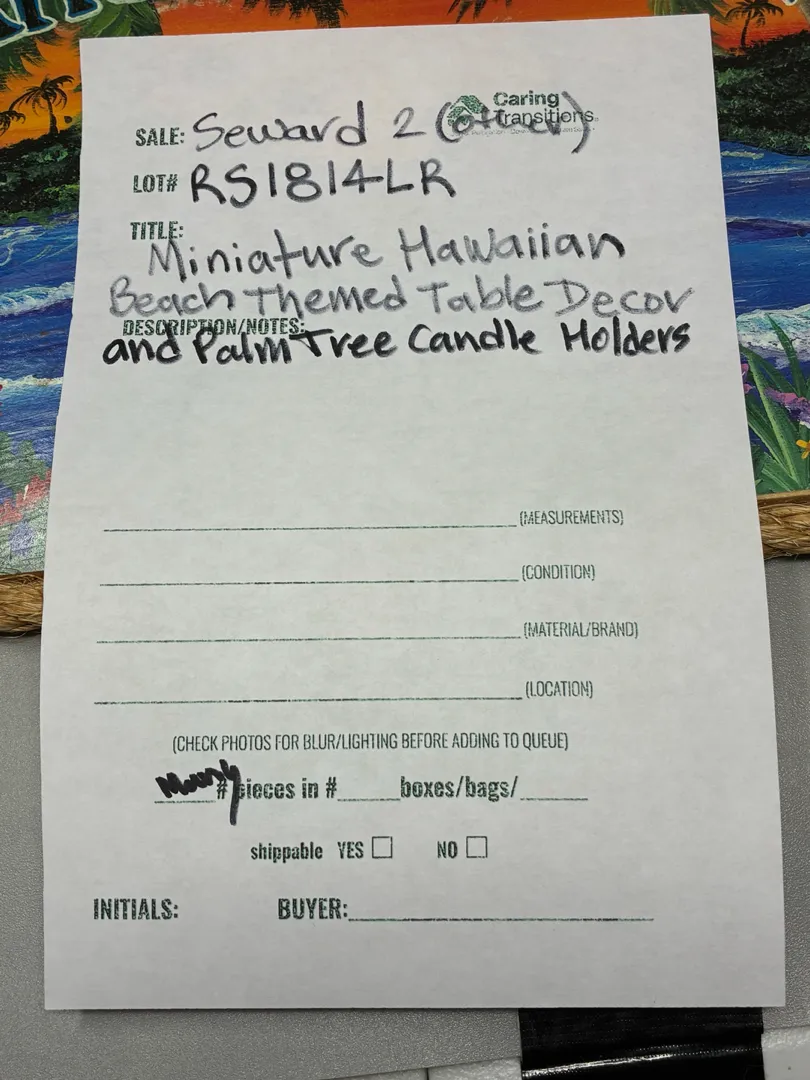 Caring
Transitions
SALE: Seward 2
LOT# RS1814LR
TITLE:
Miniature Hawaiian
Beach Themed Table Decor
DESCRIPTION/NOTES:
and Palm Tree Candle Holders
(MEASUREMENTS)
(CONDITION)
(MATERIAL/BRAND)
(LOCATION)
(CHECK PHOTOS FOR BLUR/LIGHTING BEFORE ADDING TO QUEUE)
Many # pieces in # boxes/bags/
shippable YES NO
INITIALS: BUYER: